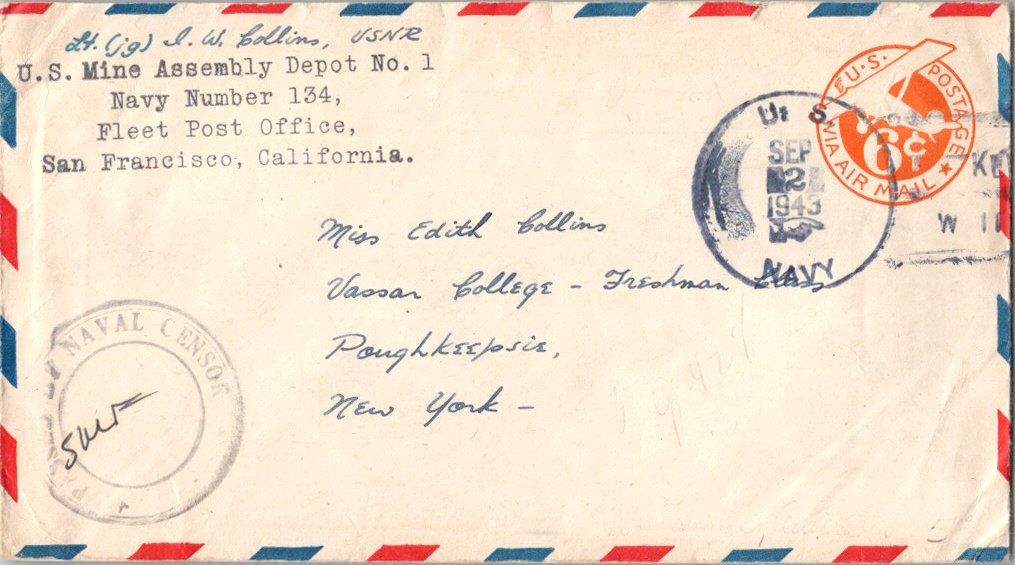 Lt. (jg) I. W. Collins, USNR
U.S. Mine Assembly Depot No. 1
Navy Number 134,
Fleet Post Office,
San Francisco, California.
U.S. POSTAGE
6¢
VIA AIR MAIL
U. S.
SEP
2
1943
NAVY
KE
W I
Miss Edith Collins
Vassar College - Freshman Class
Poughkeepsie,
New York -
PASSED BY NAVAL CENSOR